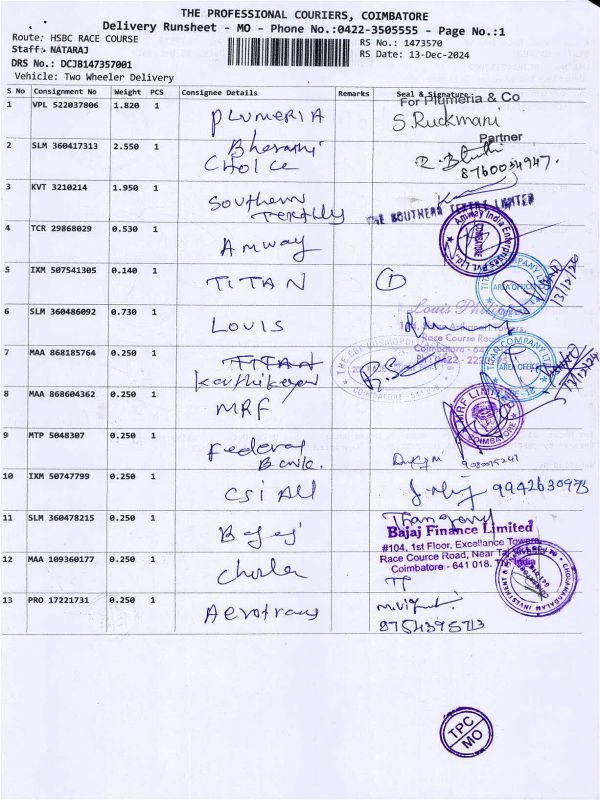 THE PROFESSIONAL COURIERS, COIMBATORE
Delivery Runsheet - MO - Phone No.:0422-3505555 - Page No.:1
Route: HSBC RACE COURSE
RS No.: 1473570
Staff: NATARAJ
RS Date: 13-Dec-2024
DRS No.: DCJB147357001
Vehicle: Two Wheeler Delivery
S No Consignment No Weight PCS Consignee Details Remarks Seal & Signature
For Plumeria & Co
1 VPL 522037806 1.820 1 PLUMERIA S. Ruckmani
Partner
2 SLM 360417313 2.550 1 Bharathi
Choice
8760034947.
3 KVT 3210214 1.950 1 Southern
THE SOUTHERN TEXTILE LIMITED
4 TCR 29868029 0.530 1 Amway
Amway India Enterprises Pvt. Ltd.
COIMBATORE
5 IXM 507541305 0.140 1 TITAN 1
TITAN COMPANY LTD
AREA OFFICE
13/12/24
6 SLM 360486092 0.730 1 LOUIS
Louis Philippe
Race Course Road
Coimbatore
7 MAA 868185764 0.250 1 TITAN
Karthikeyan
THE CBE COSMOPOLITAN
COIMBATORE
TITAN COMPANY LTD
AREA OFFICE
8 MAA 868604362 0.250 1 MRF
MRF LIMITED
COIMBATORE
9 MTP 5048307 0.250 1 Federal
Bank.
10 IXM 50747799 0.250 1 CSI All
11 SLM 360478215 0.250 1 Bajaj
Bajaj Finance Limited
#104, 1st Floor, Excellance Towers,
Race Cource Road, Near Taj
Coimbatore - 641 018. TN India
12 MAA 109360177 0.250 1 Chola
CHOLAMANDALAM INVESTMENT &
13 PRO 17221731 0.250 1 Aerotrans
8754395713
TPC
MO